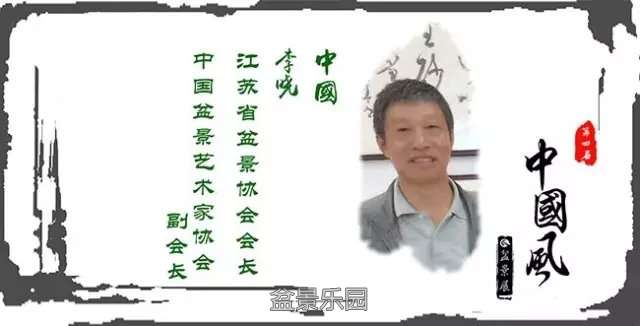 第四届
中國風
盆景展
中國
李晓
江苏省盆景协会会长
中国盆景艺术家协会
副会长
盆景乐园